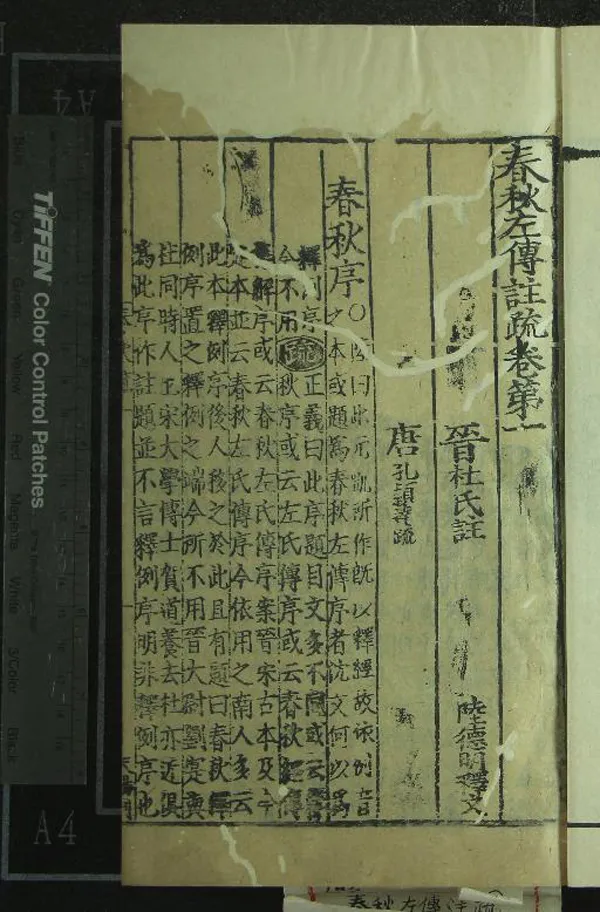 春秋左傳註疏卷第一
晉杜氏註 陸德明釋文
唐孔穎達疏
春秋序○陸曰此元凱所作既以釋經故依例音
之本或題為春秋左傳序者沈文何以為
釋例序
今不用疏正義曰此序題目文多不同或云春
秋序或云左氏傳序或云春秋經傳
集解序或云春秋左氏傳序案晉宋古本及今
定本並云春秋左氏傳序今依用之南人多云
此本釋例序後人移之於此且有題曰春秋釋
例序置之釋例之端今所不用晉大尉劉寔與
杜同時人也宋大學博士賀道養去杜亦近俱
為此序作註題並不言釋例序明非釋例序也
TIFFEN Color Control Patches
Blue
Cyan
Green
Yellow
Red
Magenta
White
3/Color
Black
A4
A4
春秋左傳注疏